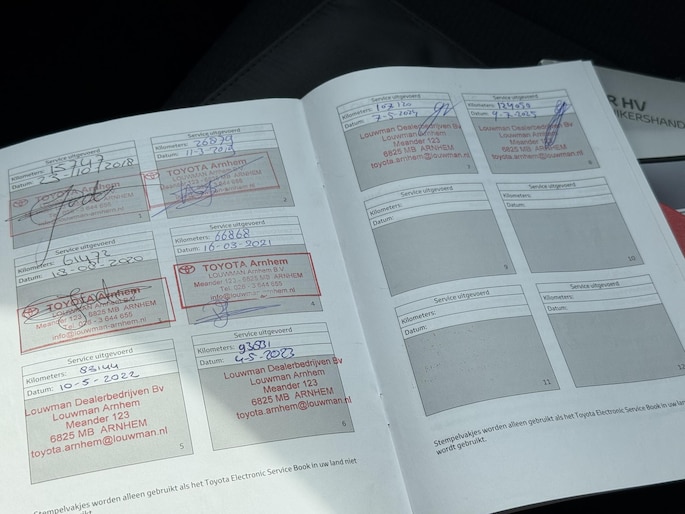 Service uitgevoerd
Kilometers: 15147
Datum: 10-2018
TOYOTA Arnhem
1
Service uitgevoerd
Kilometers: 26879
Datum: 11-3-2019
TOYOTA Arnhem
LOUWMAN Arnhem B.V.
2
Service uitgevoerd
Kilometers: 61473
Datum: 2020
TOYOTA Arnhem
LOUWMAN Arnhem B.V.
Meander 123 - 6825 MB ARNHEM
Tel. 026 - 3 644 655
info@louwman-arnhem.nl
Service uitgevoerd
Kilometers: 66868
Datum: 16-03-2021
TOYOTA Arnhem
LOUWMAN Arnhem B.V.
Meander 123 - 6825 MB ARNHEM
Tel. 026 - 3 644 655
info@louwman-arnhem.nl
4
Service uitgevoerd
Kilometers: 83144
Datum: 10-5-2022
Louwman Dealerbedrijven Bv
Louwman Arnhem
Meander 123
6825 MB ARNHEM
toyota.arnhem@louwman.nl
5
Service uitgevoerd
Kilometers: 93831
Datum: 4-5-2023
Louwman Dealerbedrijven Bv
Louwman Arnhem
Meander 123
6825 MB ARNHEM
toyota.arnhem@louwman.nl
6
Stempelvakjes worden alleen gebruikt als het Toyota Electronic Service Book in uw land niet
Service uitgevoerd
Kilometers: 107120
Datum: 7-5-2024
Louwman Dealerbedrijven Bv
Louwman Arnhem
Meander 123
6825 MB ARNHEM
toyota.arnhem@louwman.nl
7
Service uitgevoerd
Kilometers: 124050
Datum: 9-7-2025
Louwman Dealerbedrijven Bv
Louwman Arnhem
Meander 123
6825 MB ARNHEM
toyota.arnhem@louwman.nl
8
Service uitgevoerd
Kilometers:
Datum:
9
Service uitgevoerd
Kilometers:
Datum:
10
Service uitgevoerd
Kilometers:
Datum:
11
Service uitgevoerd
Kilometers:
Datum:
12
Stempelvakjes worden alleen gebruikt als het Toyota Electronic Service Book in uw land
wordt gebruikt.
R HV
IKERSHAND